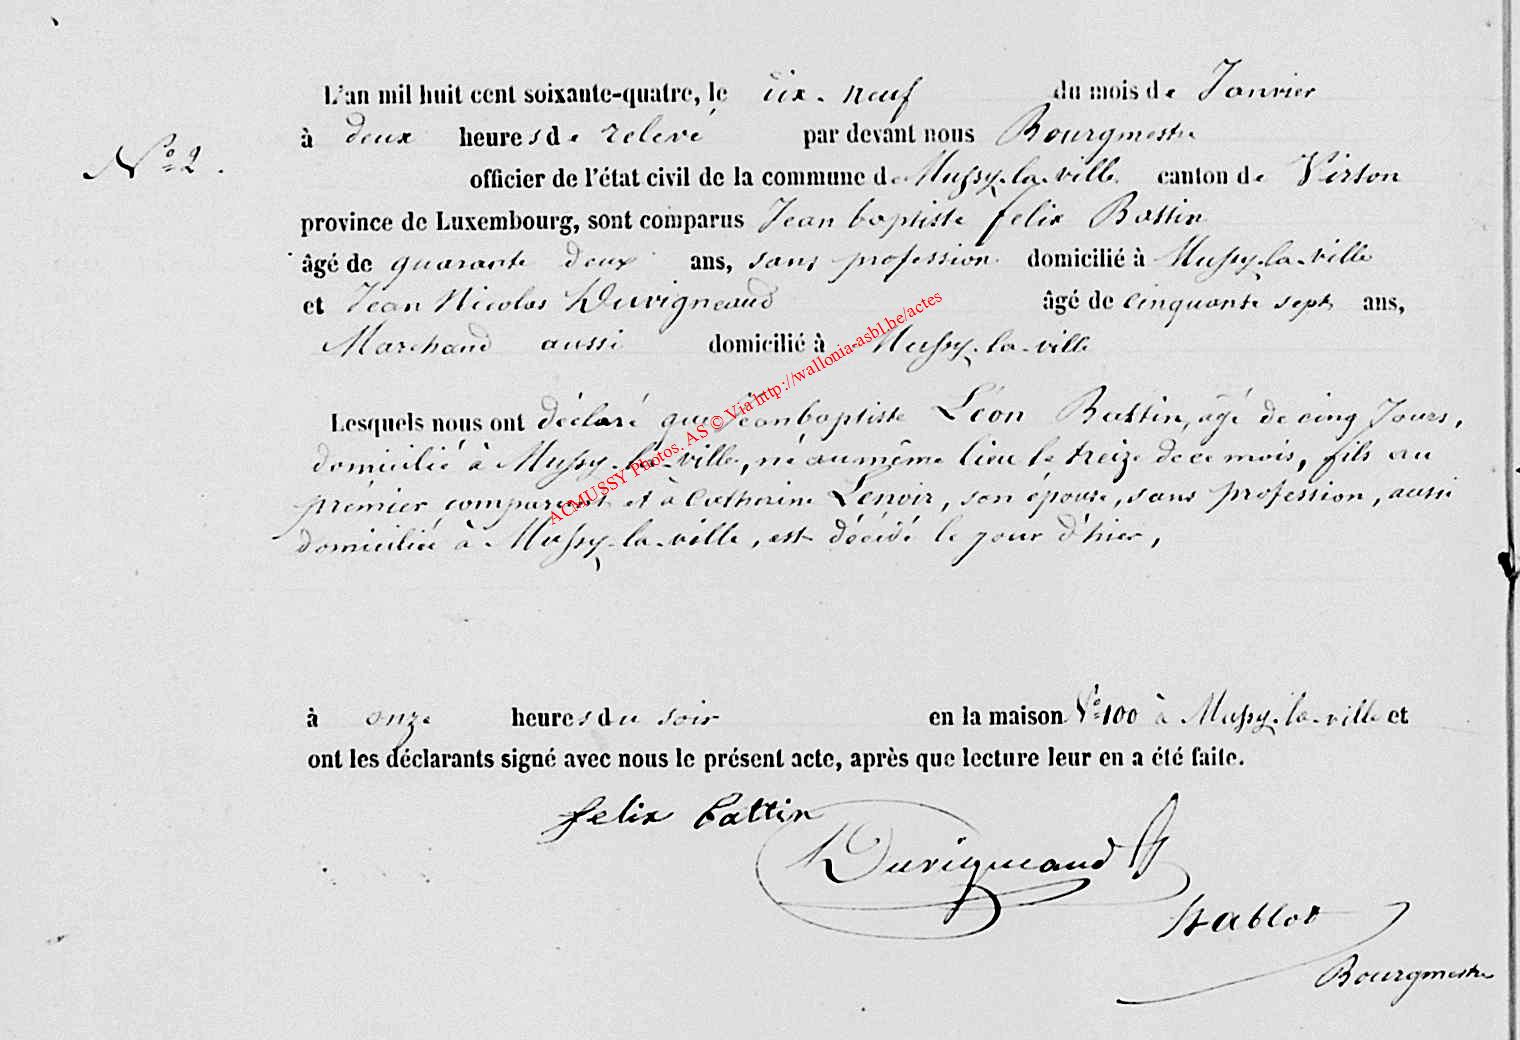 L'an mil huit cent soixante-quatre, le dix-neuf du mois de Janvier
N.º 2.
à deux heures de relevé par devant nous Bourgmestre
officier de l'état civil de la commune de Mussy-la-ville canton de Virton
province de Luxembourg, sont comparus Jean baptiste félix Battin
âgé de quarante deux ans, sans profession domicilié à Mussy-la-ville
et Jean Nicolas Duvigneaud âgé de cinquante sept ans,
Marchand aussi domicilié à Mussy-la-ville
Lesquels nous ont déclaré que Jean baptiste Léon Battin, âgé de cinq Jours,
domicilié à Mussy-la-ville, né au même lieu le treize de ce mois, fils au
prémier comparant et à Catherine Lenoir, son épouse, sans profession, aussi
domiciliée à Mussy-la-ville, est décédé le jour d'hier,
à onze heures du soir en la maison Nº 100 à Mussy-la-ville et
ont les déclarants signé avec nous le présent acte, après que lecture leur en a été faite.
felix battin
Duvigneaud
Hablot
Bourgmestre
ACMUSSY Photos. AS © Via http://wallonia-asbl.be/actes